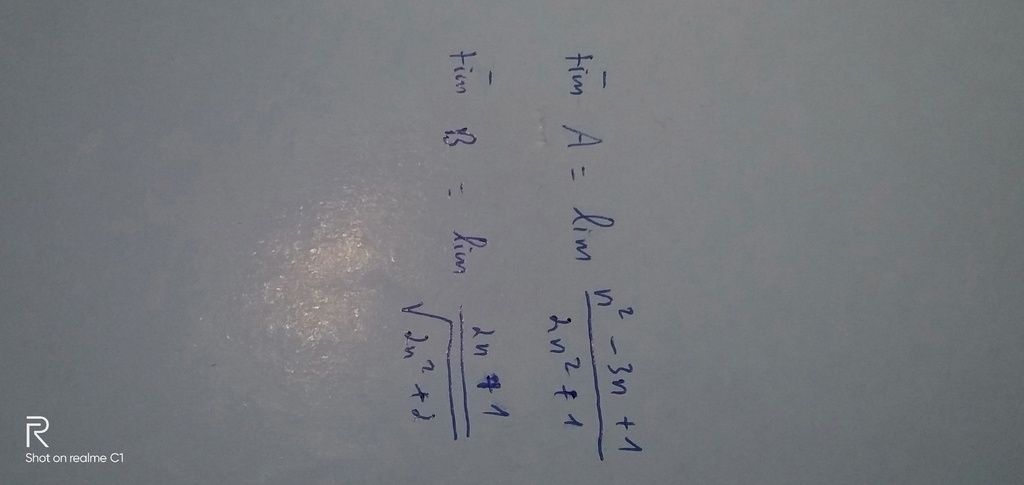 tìm A = lim n² - 3n + 1 / 2n² + 1
tìm B = lim 2n + 1 / √2n² + 2
R
Shot on realme C1